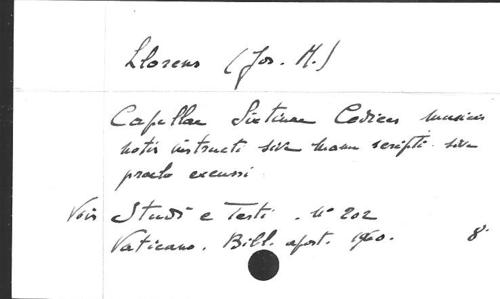 Llorens (Jos. M.)
Capellae Sixtinae Codices musicis
notis instructi sive manu scripti sive
praelo excussi
Voir Studi e Testi. N° 202
Vaticano. Bibl. apost. 1960. 8°